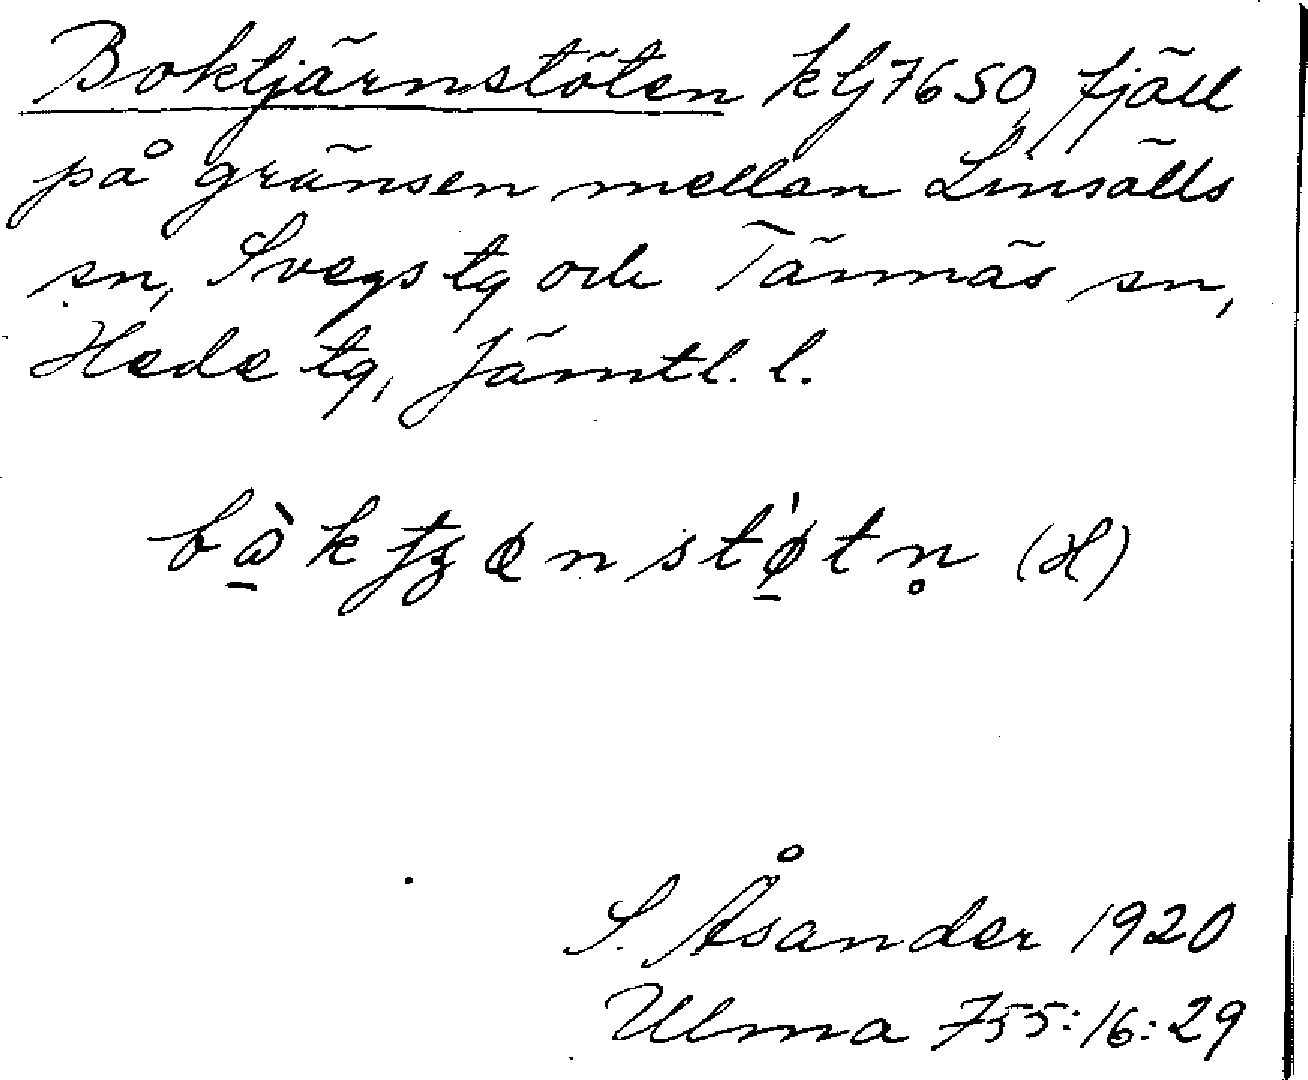 Boktjärnstöten kG7650, fjäll
på gränsen mellan Linsälls
sn, Svegs tg och Tännäs sn,
Hede tg, Jämtl. l.
(H)
S. Åsander 1920
Ulma 755:16:29